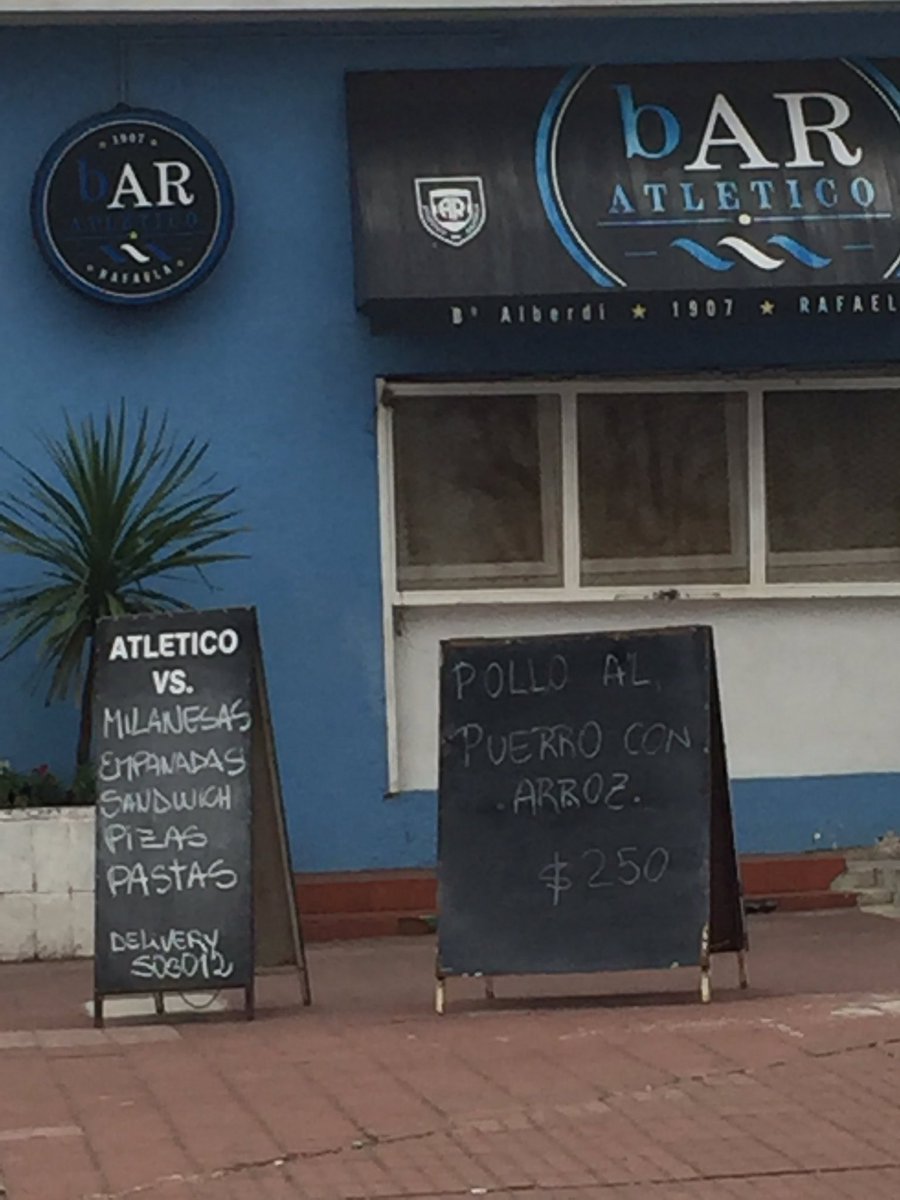 1907
bAR
ATLETICO
RAFAELA
bAR
ATLETICO
AR
Bº Alberdi ★ 1907 ★ RAFAEL
ATLETICO
VS.
MILANESAS
EMPANADAS
SANDWICH
PIZAS
PASTAS
DELIVERY
503012
POLLO AL
PUERRO CON
.ARROZ.
$250